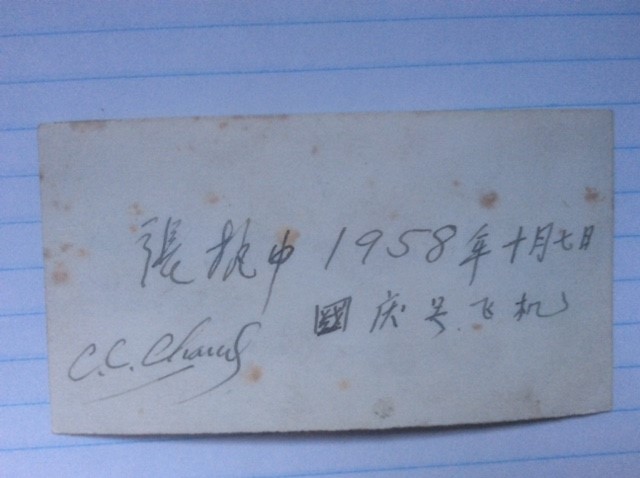 張執中 1958年十月七日
國庆号飞机
C.C. Chang